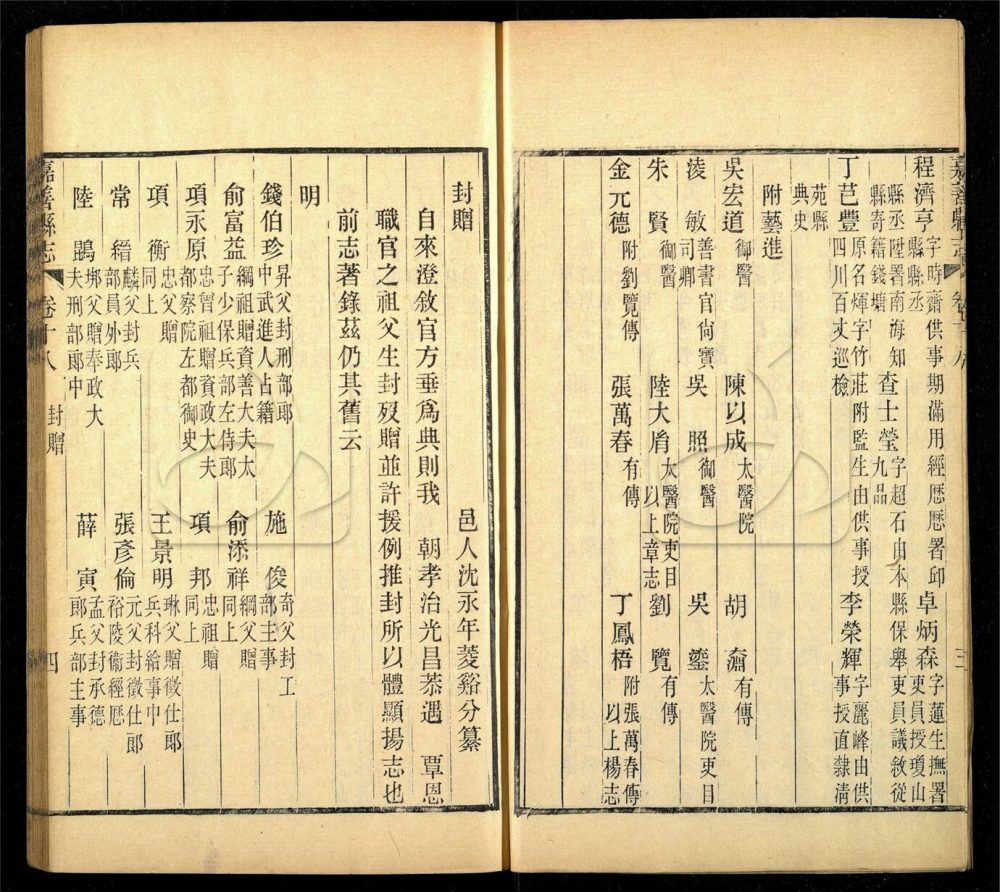 嘉善縣志 卷十八 三
程濟亨 字時齋供事期滿用經歷歷署邱縣縣丞 卓炳森 字蓮生撫署吏員授瓊山
縣丞陞署南海知縣寄籍錢塘 查士瑩 字超石由本縣保舉吏員議敘從九品
丁芑豐 原名煇字竹莊附監生由供事授四川百丈巡檢 李榮輝 字麗峰由供事授直隸清
苑縣典史
附藝進
吳宏道 御醫 陳以成 太醫院 胡奫 有傳
淩敏 善書官尚寶司卿 吳照 御醫 吳鎏 太醫院吏目
朱賢 御醫 陸大脣 太醫院吏目以上章志 劉覽 有傳
金元德 附劉覽傳 張萬春 有傳 丁鳳梧 附張萬春傳以上楊志
封贈 邑人沈永年菱谿分纂
自來澄敘官方垂為典則我 朝孝治光昌恭遇 覃恩
職官之祖父生封歿贈並許援例推封所以體顯揚志也
前志著錄茲仍其舊云
明
錢伯珍 昇父封刑部郎中武進人占籍 施俊 奇父封工部主事
俞富益 綱祖贈資善大夫太子少保兵部左侍郎 俞添祥 綱父贈同上
項永原 忠曾祖贈資政大夫都察院左都御史 項邦 忠祖贈同上
項衡 忠父贈同上 王景明 琳父贈徵仕郎兵科給事中
常縉 麟父封兵部員外郎 張彥倫 元父封徵仕郎裕陵衛經歷
陸鵾 埌父贈奉政大夫刑部郎中 薛寅 孟父封承德郎兵部主事
嘉善縣志 卷十八 封贈 四